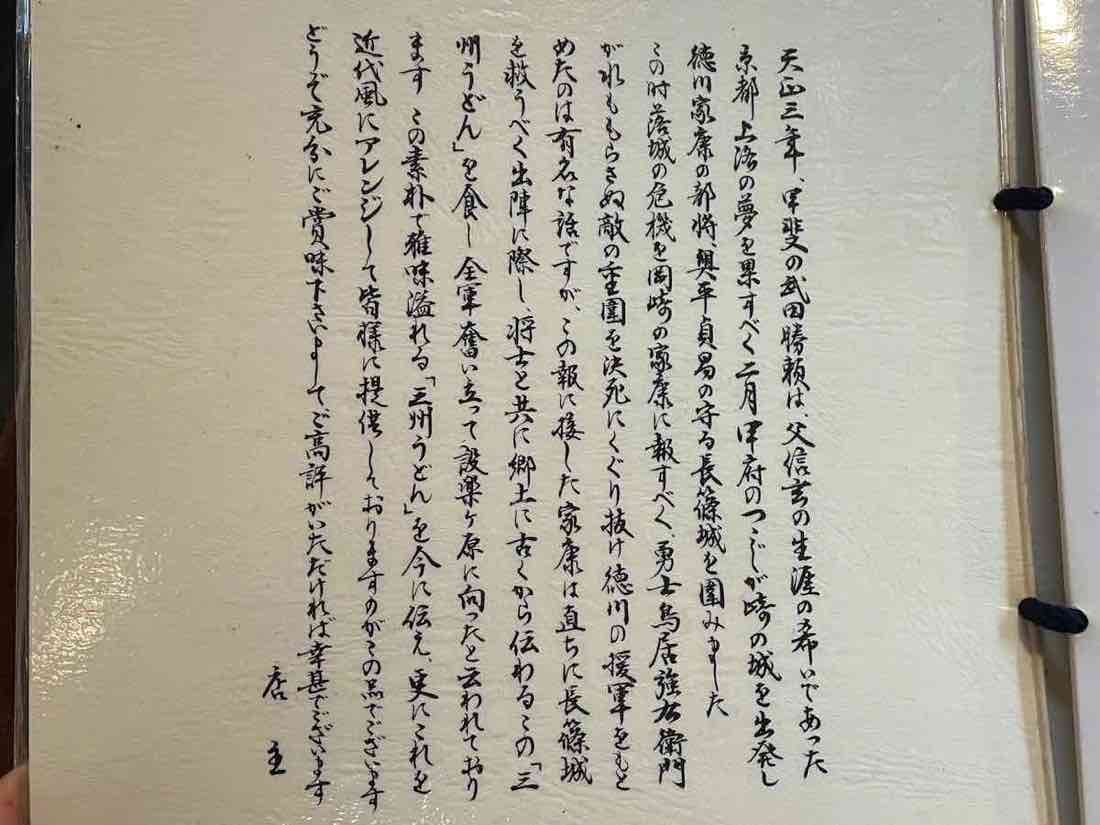 天正三年、甲斐の武田勝頼は、父信玄の生涯の希いであった
京都上洛の夢を果すべく二月甲府のつつじが崎の城を出発し
徳川家康の部将、奥平貞昌の守る長篠城を囲みました
この時落城の危機を岡崎の家康に報すべく、勇士鳥居強右衛門
が水ももらさぬ敵の重囲を決死にくぐり抜け徳川の援軍をもと
めたのは有名な話ですが、この報に接した家康は直ちに長篠城
を救うべく出陣に際し、将士と共に郷土に古くから伝わるこの「三
州うどん」を食し全軍奮い立って設楽ヶ原に向ったと云われており
ます この素朴で雅味溢れる「三州うどん」を今に伝え、更にこれを
近代風にアレンジして皆様に提供しておりますのがこの品でございます
どうぞ充分にご賞味下さいましてご高評がいただければ幸甚でございます
店主